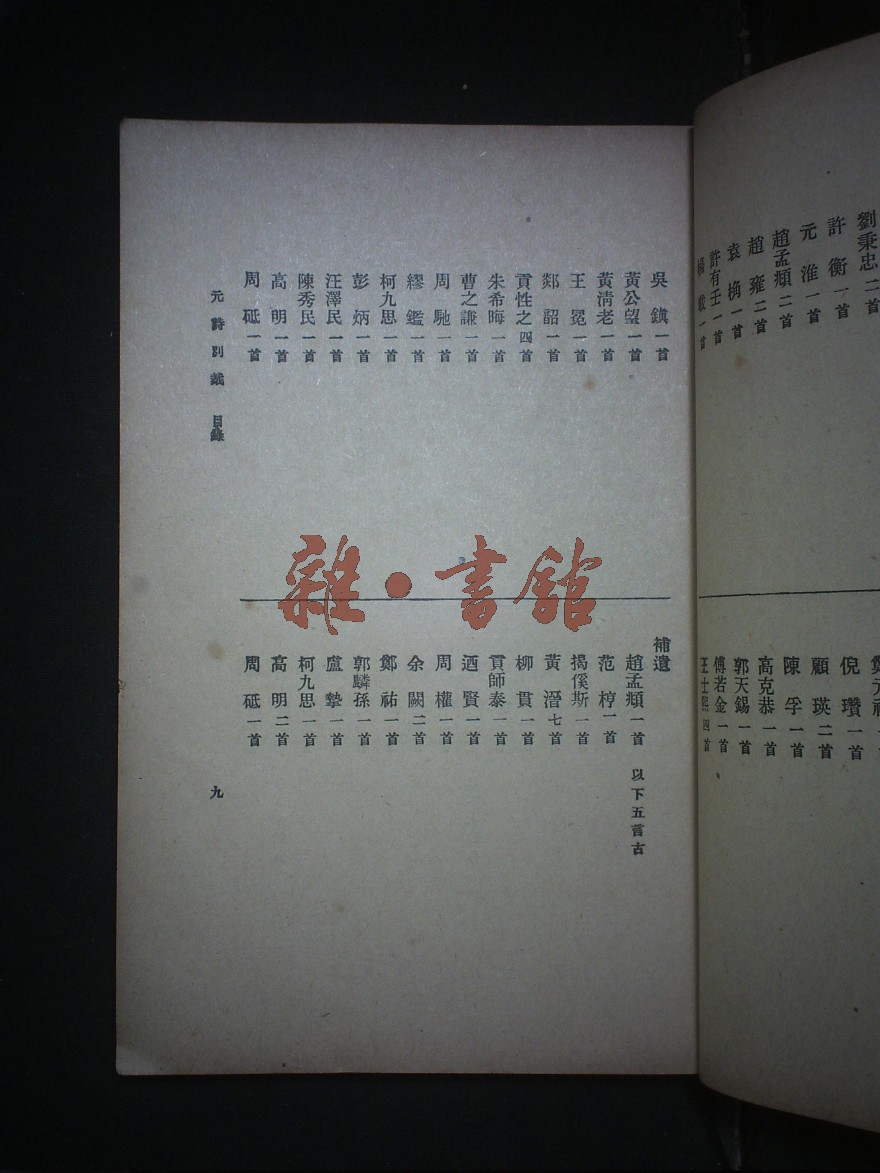 劉秉忠二首
許衡一首
元淮一首
趙孟頫二首
趙雍二首
袁桷一首
許有壬一首
倪瓚一首
顧瑛二首
陳孚一首
高克恭一首
郭天錫一首
傅若金一首
王士熙四首
吳鎮一首
黃公望一首
黃清老一首
王冕一首
郯韶一首
貢性之四首
朱希晦一首
曹之謙一首
周馳一首
繆鑑一首
柯九思一首
彭炳一首
汪澤民一首
陳秀民一首
高明一首
周砥一首
補遺
趙孟頫一首 以下五言古
范梈一首
揭傒斯一首
黃溍七首
柳貫一首
貢師泰一首
迺賢一首
周權一首
余闕二首
鄭祐一首
郭麟孫一首
盧摯一首
柯九思一首
高明二首
周砥一首
元詩別裁 目錄
九
雜·書館